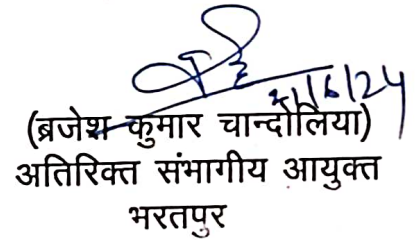 (ब्रजेश कुमार चान्दोलिया)
अतिरिक्त संभागीय आयुक्त
भरतपुर